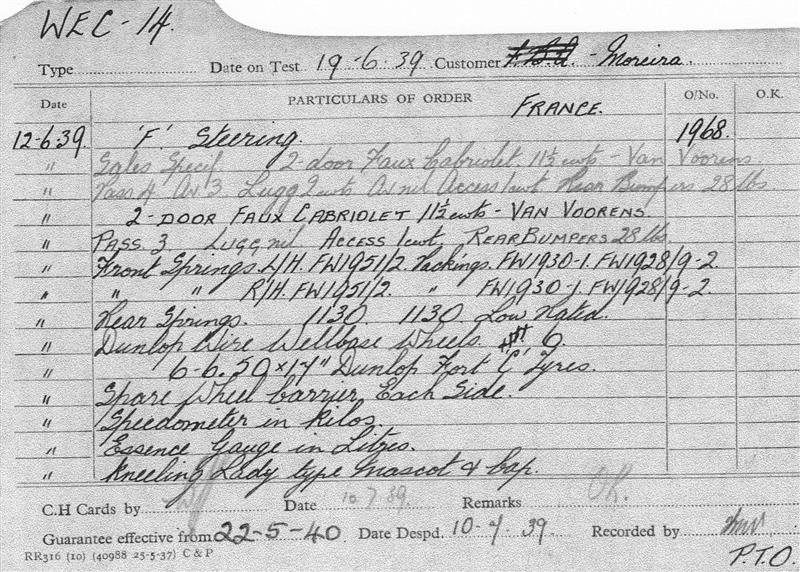 WEC-14.
Type Date on Test 19-6-39 Customer - Moreira.
Date PARTICULARS OF ORDER FRANCE. O/No. O.K.
12-6-39. 'F'. Steering. 1968.
" Sales Specif 2-door Faux Cabriolet 11½ cwts - Van Voorens.
" Pass 4 Av 3. Lugg 2 cwts Av nil Access 1 cwt Rear Bumpers 28 lbs
" 2-DOOR FAUX CABRIOLET 11½ cwts - VAN VOORENS.
" PASS. 3. LUGG nil ACCESS 1 cwt REAR BUMPERS 28 lbs.
" Front Springs. L/H. FW1951/2. Packings. FW1930-1. FW1928/9-2.
" " " R/H. FW1951/2. " FW1930-1. FW1928/9-2
" Rear Springs. 1130. 1130 Low Rated.
" Dunlop Wire Wellbase Wheels. 6.
" 6-6.50 x 17" Dunlop Fort 'C' Tyres.
" Spare Wheel Carrier Each Side.
" Speedometer in Kilos
" Essence Gauge in Litres.
" Kneeling Lady type Mascot & Cap.
C.H Cards by Date 10.7.39. Remarks OK.
Guarantee effective from 22-5-40 Date Despd. 10-7-39. Recorded by
RR316 (10) (40988 25-5-37) C & P P.T.O.